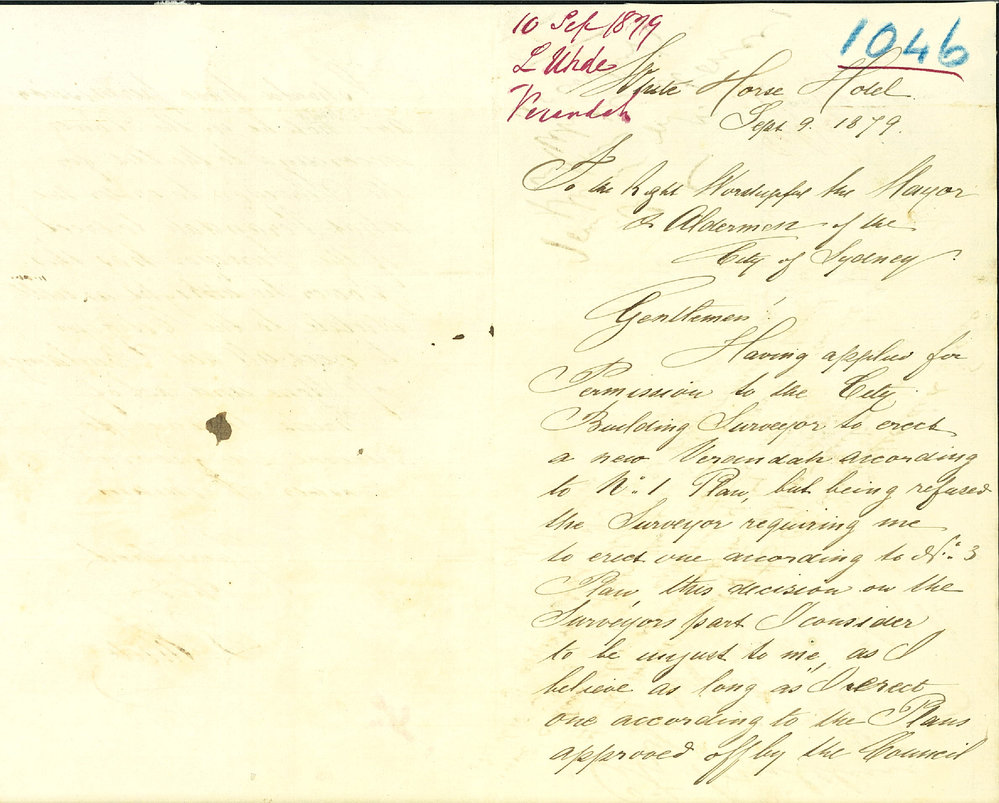 10 Sep 1879
L Uhde
Verandah
1046
White Horse Hotel
Sept 9. 1879.
To the Right Worshipful the Mayor
& Aldermen of the
City of Sydney
Gentlemen!
Having applied for
Permission to the City
Building Surveyor to erect
a new Verandah according
to No. 1 Plan, but being refused
the Surveyor requiring me
to erect one acording to No. 3
Plan, this decision on the
Surveyors part I consider
to be unjust to me, as I
believe as long as I erect
one according to the Plans
approved off by the Council